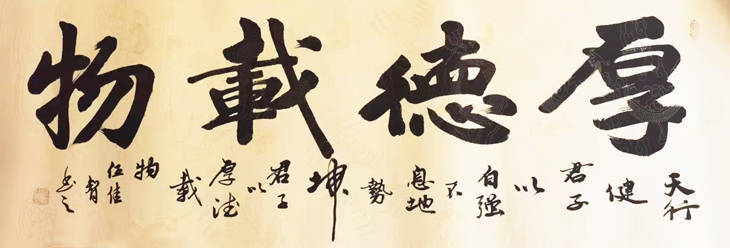 厚德載物
天行健君子以自强不息地勢坤君子以厚德載物
伍佳智書之